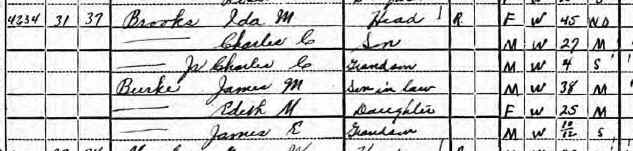 4234 31 37 Brooks Ida M Head R F W 45 Wd
—— Charles C Son M W 27 M
—— Jr Charles C Grandson M W 4 S
Burke James M Son in law M W 38 M
—— Edith M Daughter F W 25 M
—— James E Grandson M W 10/12 S